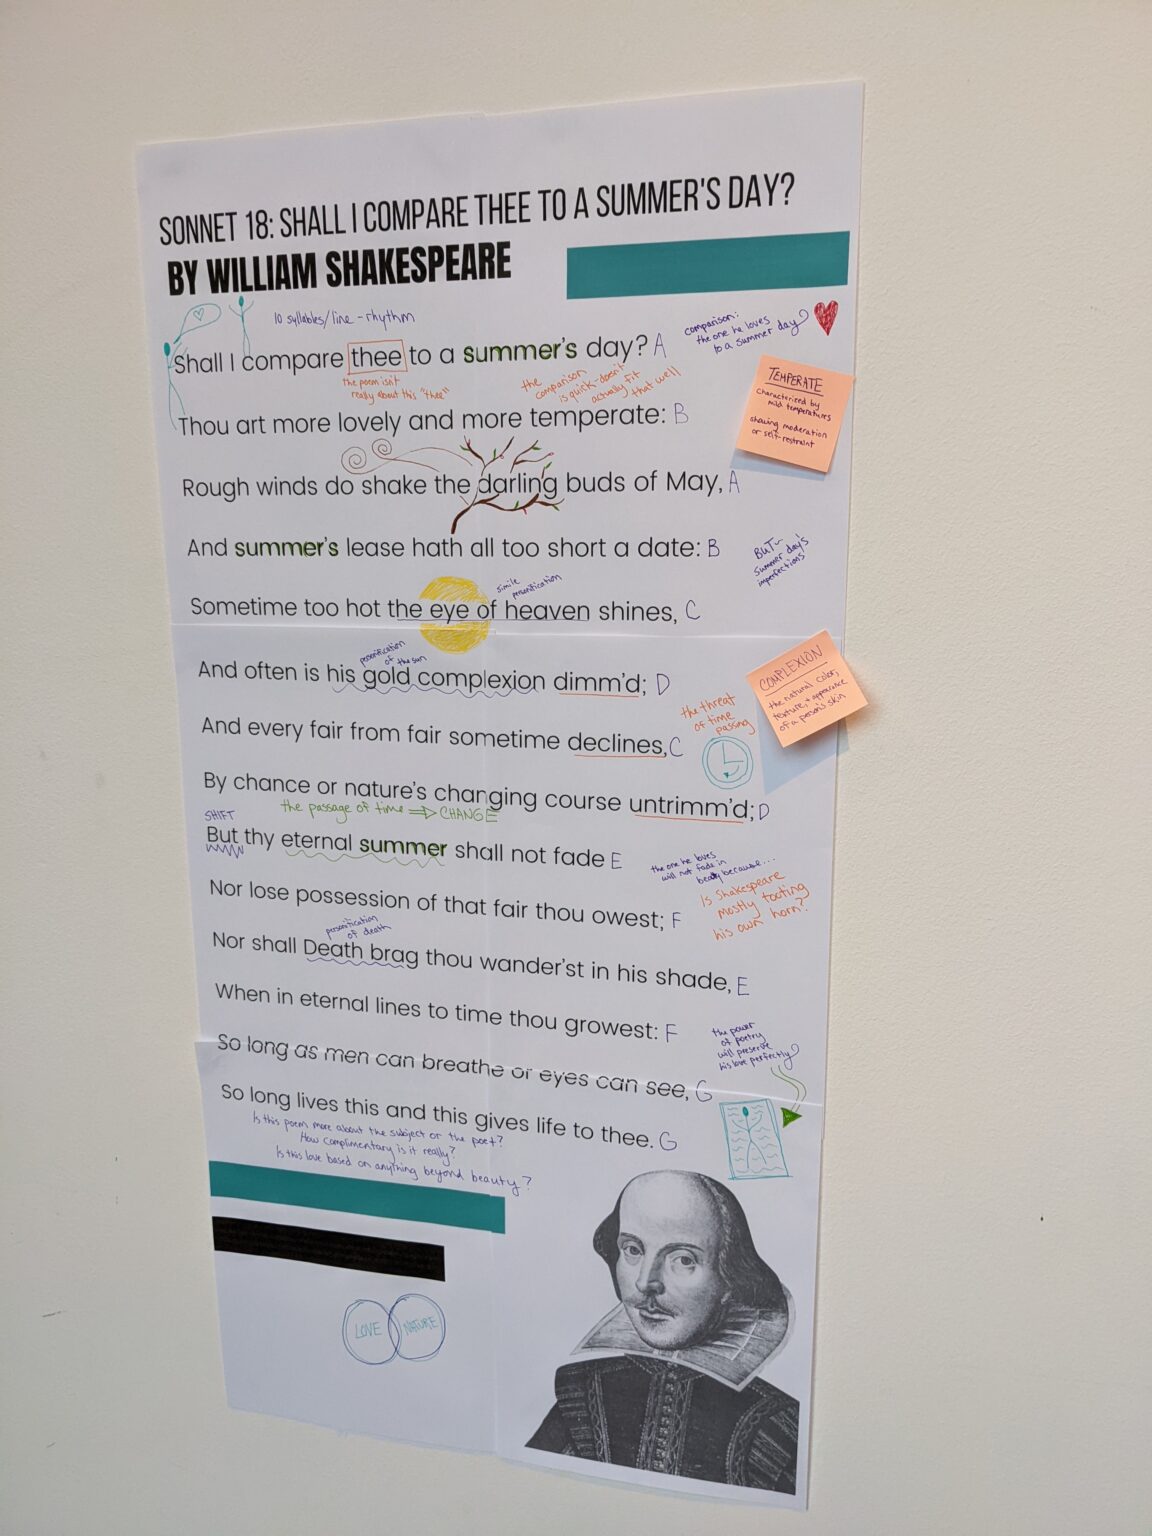 SONNET 18: SHALL I COMPARE THEE TO A SUMMER'S DAY?
BY WILLIAM SHAKESPEARE
10 syllables/line - rhythm
comparison:
the one he loves
to a summer day
Shall I compare thee to a summer's day? A
the poem isn't
really about this "thee"
the
comparison
is quick - doesn't
actually fit
that well
TEMPERATE
characterized by
mild temperatures
showing moderation
or self-restraint
Thou art more lovely and more temperate: B
Rough winds do shake the darling buds of May, A
And summer's lease hath all too short a date: B
BUT~
summer day's
imperfections
simile
personification
Sometime too hot the eye of heaven shines, C
personification
of the sun
And often is his gold complexion dimm'd; D
COMPLEXION
the natural color,
texture, + appearance
of a person's skin
the threat
of time
passing
And every fair from fair sometime declines, C
By chance or nature's changing course untrimm'd; D
the passage of time ⇒ CHANGE
SHIFT
But thy eternal summer shall not fade E
the one he loves
will not fade in
beauty because...
Is Shakespeare
mostly tooting
his own horn?
Nor lose possession of that fair thou owest; F
personification
of death
Nor shall Death brag thou wander'st in his shade, E
When in eternal lines to time thou growest: F
the power
of poetry
will preserve
his love perfectly
So long as men can breathe or eyes can see, G
So long lives this and this gives life to thee. G
Is this poem more about the subject or the poet?
How complimentary is it really?
Is this love based on anything beyond beauty?
LOVE NATURE